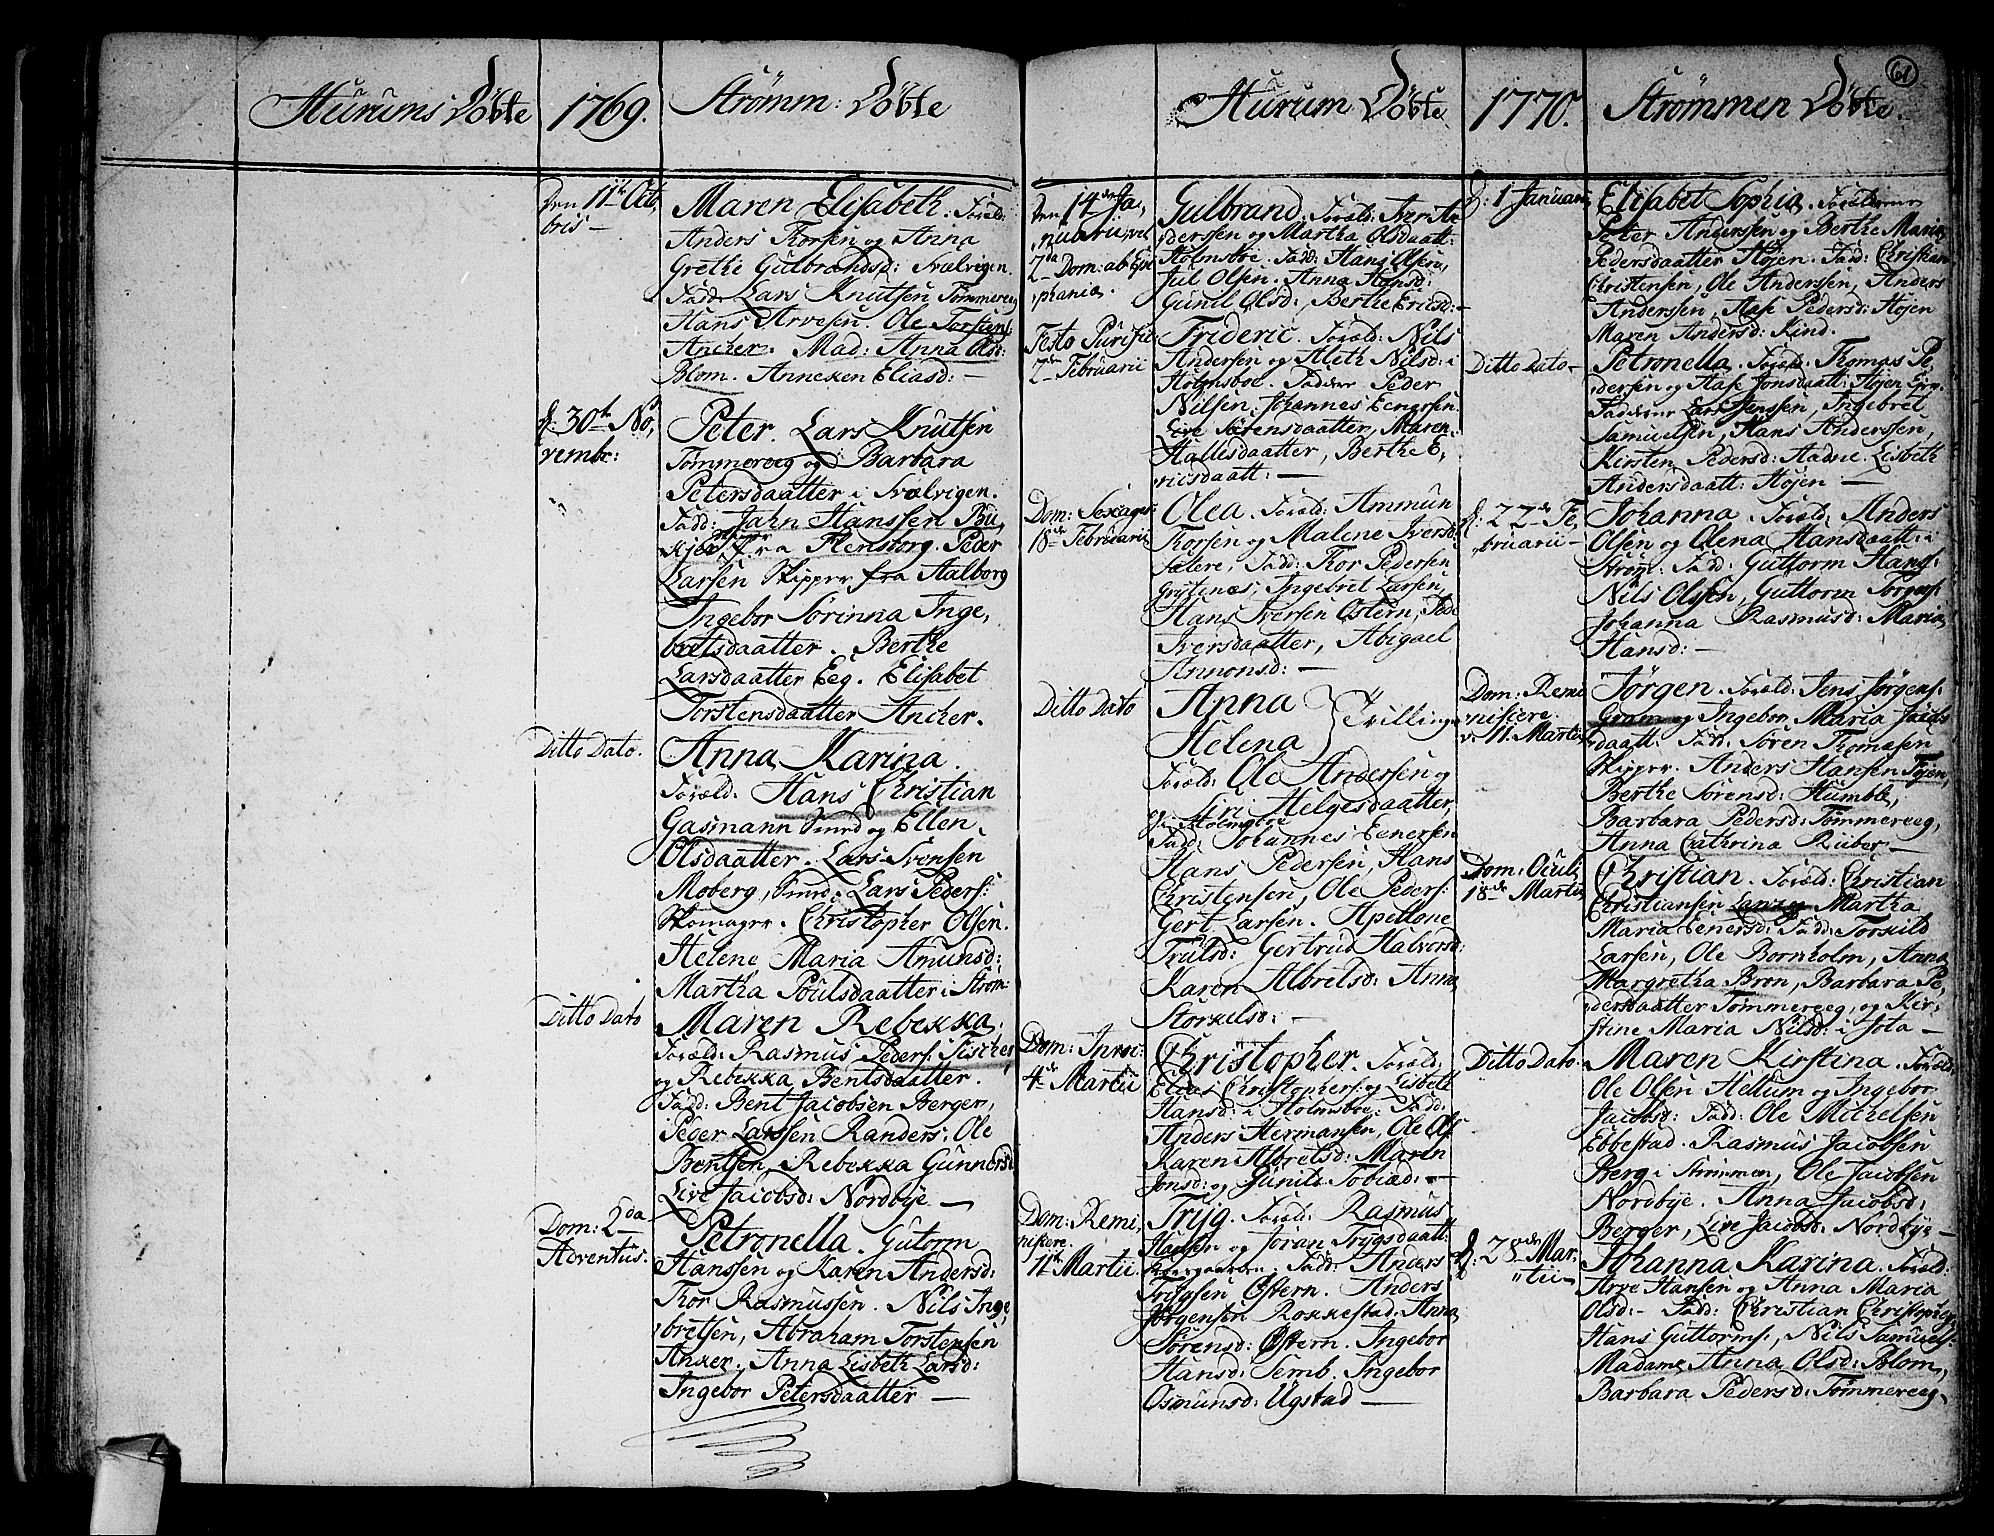 Hurums Döbte
1769.
Strömm: Döbte
Den 11te Octo,
bris —
Maren Elisabeth. Foræld:
Anders Thorsen og Anna
Grethe Gulbrandsd: Svælvigen.
Fadd. Lars Knutsen Tømmereeg
Hans Arvesen. Ole Torstens:
Ancher. Mad: Anna Olsd:
Blom. Anneken Eliasd: —
d: 30te No,
vembr:
Peter. Lars Knutsen
Tømmereeg og Barbara
Petersdaatter i Svælvigen.
Fadd: Jahn Hanssen Bu,
kjer, Skipper fra Flensborg. Peder
Larsen Skipper fra Aalborg
Ingebor Sørinna Inge,
bretsdaatter. Berthe
Larsdaatter Eeg. Elisabet
Torstensdaatter Ancher.
Ditto Dato.
Anna Karina.
Foræld: Hans Christian
Gasmann Smed og Ellen
Olsdaatter. Lars Svensen
Moberg, Smed. Lars Peders:
Skomager. Christopher Olsen.
Helene Maria Amunsd:
Martha Poulsdaatter i Strøm:
Ditto Dato
Maren Rebekka.
Foræld: Rasmus Peders: Fischer
og Rebekka Bentsdaatter.
Fadd: Bent Jacobsen Berger,
Peder Larssen Randers. Ole
Bentsen, Rebekka Gunnersd
Live Jacobsd: Nordbye —
Dom: 2da
Adventus.
Petronella. Gutorm
Hanssen og Karen Andersd:
Thor Rasmussen. Nils Inge,
bretsen, Abraham Torstensen
Anker. Anna Lisbeth Larsd:
Ingebor Petersdaatter —
Hurum Döbte
1770.
Strömmen Döbte.
61
Den 14de Ja,
nuarii, vel
2da Dom: ab Epi
phania.
Gulbrand. Foræld: Iver An
dersen og Martha Olsdaatt:
Holmsboe. Fadd: Hans Olsen,
Jul Olsen. Anna Hansd:
Gunil Olsd: Berthe Ericsd: —
Festo Purific:
2de Februarii
Frideric. Foræld: Nils
Andersen og Aleth Nilsd: i
Holmsboe. Faddere Peder
Nilsen, Johannes Eenersen
Live Sørensdaatter, Maren
Hallesdaatter, Berthe E,
ricsdaatt: —
Dom: Sexages:
18de Februarii
Olea. Foræld: Ammun
Thorsen og Malene Iversd:
Sætere. Fadd: Thor Pedersen
Grytenæs, Ingebret Larsen
Hans Iversen Østern,
Iversdaatter, Abigael
Annonsd: —
Ditto Dato
Anna
Helena
Tvillinge
Foræld: Ole Andersen og
Siri Helgesdaatter,
i Holmsboe
Fadd: Johannes Eenersen
Hans Pedersen, Hans
Christensen, Ole Peders:
Gert Larsen. Apellone
Trulsd: Gertrud Halvorsd:
Karen Albretsd: Anna
Storkelsd: —
Dom: Invoc:
4de Martii
Christopher. Foræld:
Elias Christophers: og Lisbeth
Hansd: i Holmsboe. Fadd:
Anders Hermansen, Ole Ols
Karen Albretsd: Maren
Jonsd: og Gunild Tobiæd: —
Dom: Remi,
niscere.
11te Martii.
Trijg. Foræld: Rasmus
Hansen og Joran Trygsdaatt:
Fadd: Anders
Trigasen Østern. Anders
Jørgensen Rokkestad. Anna
Sørensd: Østern. Ingebor
Hansd: Semb. Ingebor
Osmunsd: Ugstad —
d: 1 Januarii
Elisabet Sophia. Forældrene
Peter Anderssen og Berthe Maria
Pedersdaatter Højen. Fadd: Christian
Christensen, Ole Anderssen, Anders
Anderssen, Aase Pedersd: Højen
Maren Andersd: Kind.
Ditto Dato —
Petronella. Foræld: Thomas Pe
dersen og Aase Jonsdaatt: Højen
Fadderne Lars Jenssen, Ingebret
Samuelsen, Hans Anderssen,
Kirsten Pedersd: Aadne. Lisbeth
Andersdaatt: Højen —
d: 22de Fe,
bruarii —
Johanna. Foræld: Anders
Olsen og Olena Hansdaatt: i
Strøm: Fadd: Guttorm Hans:
Nils Olssen, Guttorm Torgers:
Johanna Rasmusd: Maria
Hansd: —
Dom: Remi
niscere.
v. 11. Martii
Jörgen. Foræld: Jens Jörgens:
Gram og Ingebor Maria Jacobs
daatt: Fadd: Søren Thomasen
Skipper. Anders Hansen Højen,
Berthe Sørensd: Humble,
Barbara Pedersd: Tømmereeg,
Anna Cathrina Rüber —
Dom: Oculi
18de Martii
Christian. Foræld: Christian
Christiansen Lang og Martha
Maria Eenersd: Fadd: Torkild
Larsen, Ole Bornholm, Anna
Margretha Bron, Barbara Pe,
dersdaatter Tømmereeg, og Kir,
stine Maria Nilsd: i Jota —
Ditto Dato.
Maren Kirstina. Foræld:
Ole Olsen Hellum og Ingebor
Jacobsd: Fadd: Ole Mikelsen
Ebbestad. Rasmus Jacobsen
Berg i Strømmen, Ole Jacobsen
Nordbye. Anna Jacobsd:
Berger, Live Jacobsd: Nordbye —
d: 25de Mar,
tii —
Johanna Karina. Foræld:
Arve Hansen og Anna Maria
Olsd: — Fadd: Christian Christophers
Hans Guttorms:, Nils Samuels:
Madame Anna Olsd: Blom,
Barbara Pedersd: Tømmereeg.